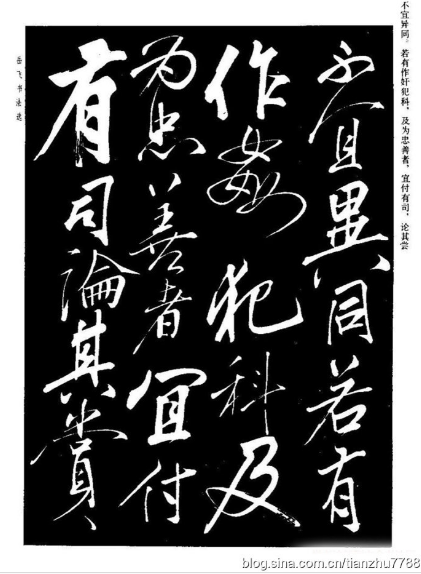 不宜异同。若有作奸犯科，及为忠善者，宜付有司，论其尝
不宜異同若有
作姦犯科及
为忠善者宜付
有司論其賞
岳飞书法选
blog.sina.com.cn/tianzhu7788